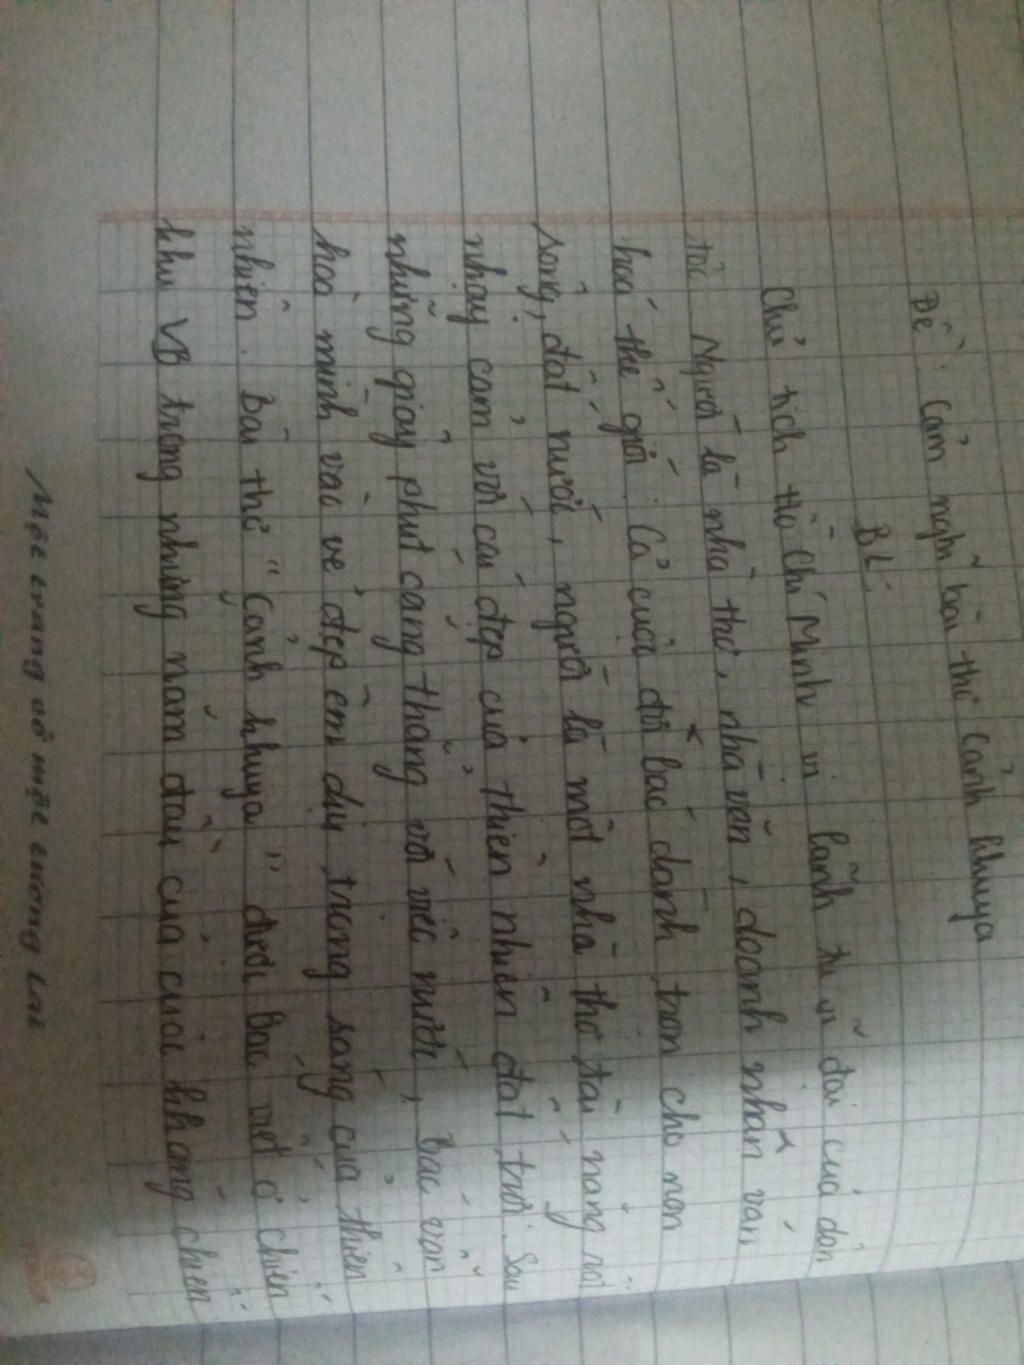 Đề: Cảm nghĩ bài thơ cảnh khuya
BL:
Chủ tịch Hồ Chí Minh vị lãnh tụ vĩ đại của dân
tộc Người là nhà thơ, nhà văn, doanh nhân văn
hoá thế giới. Cả cuộc đời bác dành trọn cho non
sông, đất nước, người là một nhà thơ tài năng
nhạy cảm với cái đẹp của thiên nhiên đất trời. Sau
những giây phút căng thẳng với việc nước, Bác vẫn
hoà mình vào vẻ đẹp êm dịu, trong sáng của thiên
nhiên. Bài thơ "Cảnh khuya" được Bác viết ở chiến
khu VB trong những năm đầu của cuộc kháng chiến
Một trang vở một tương lai